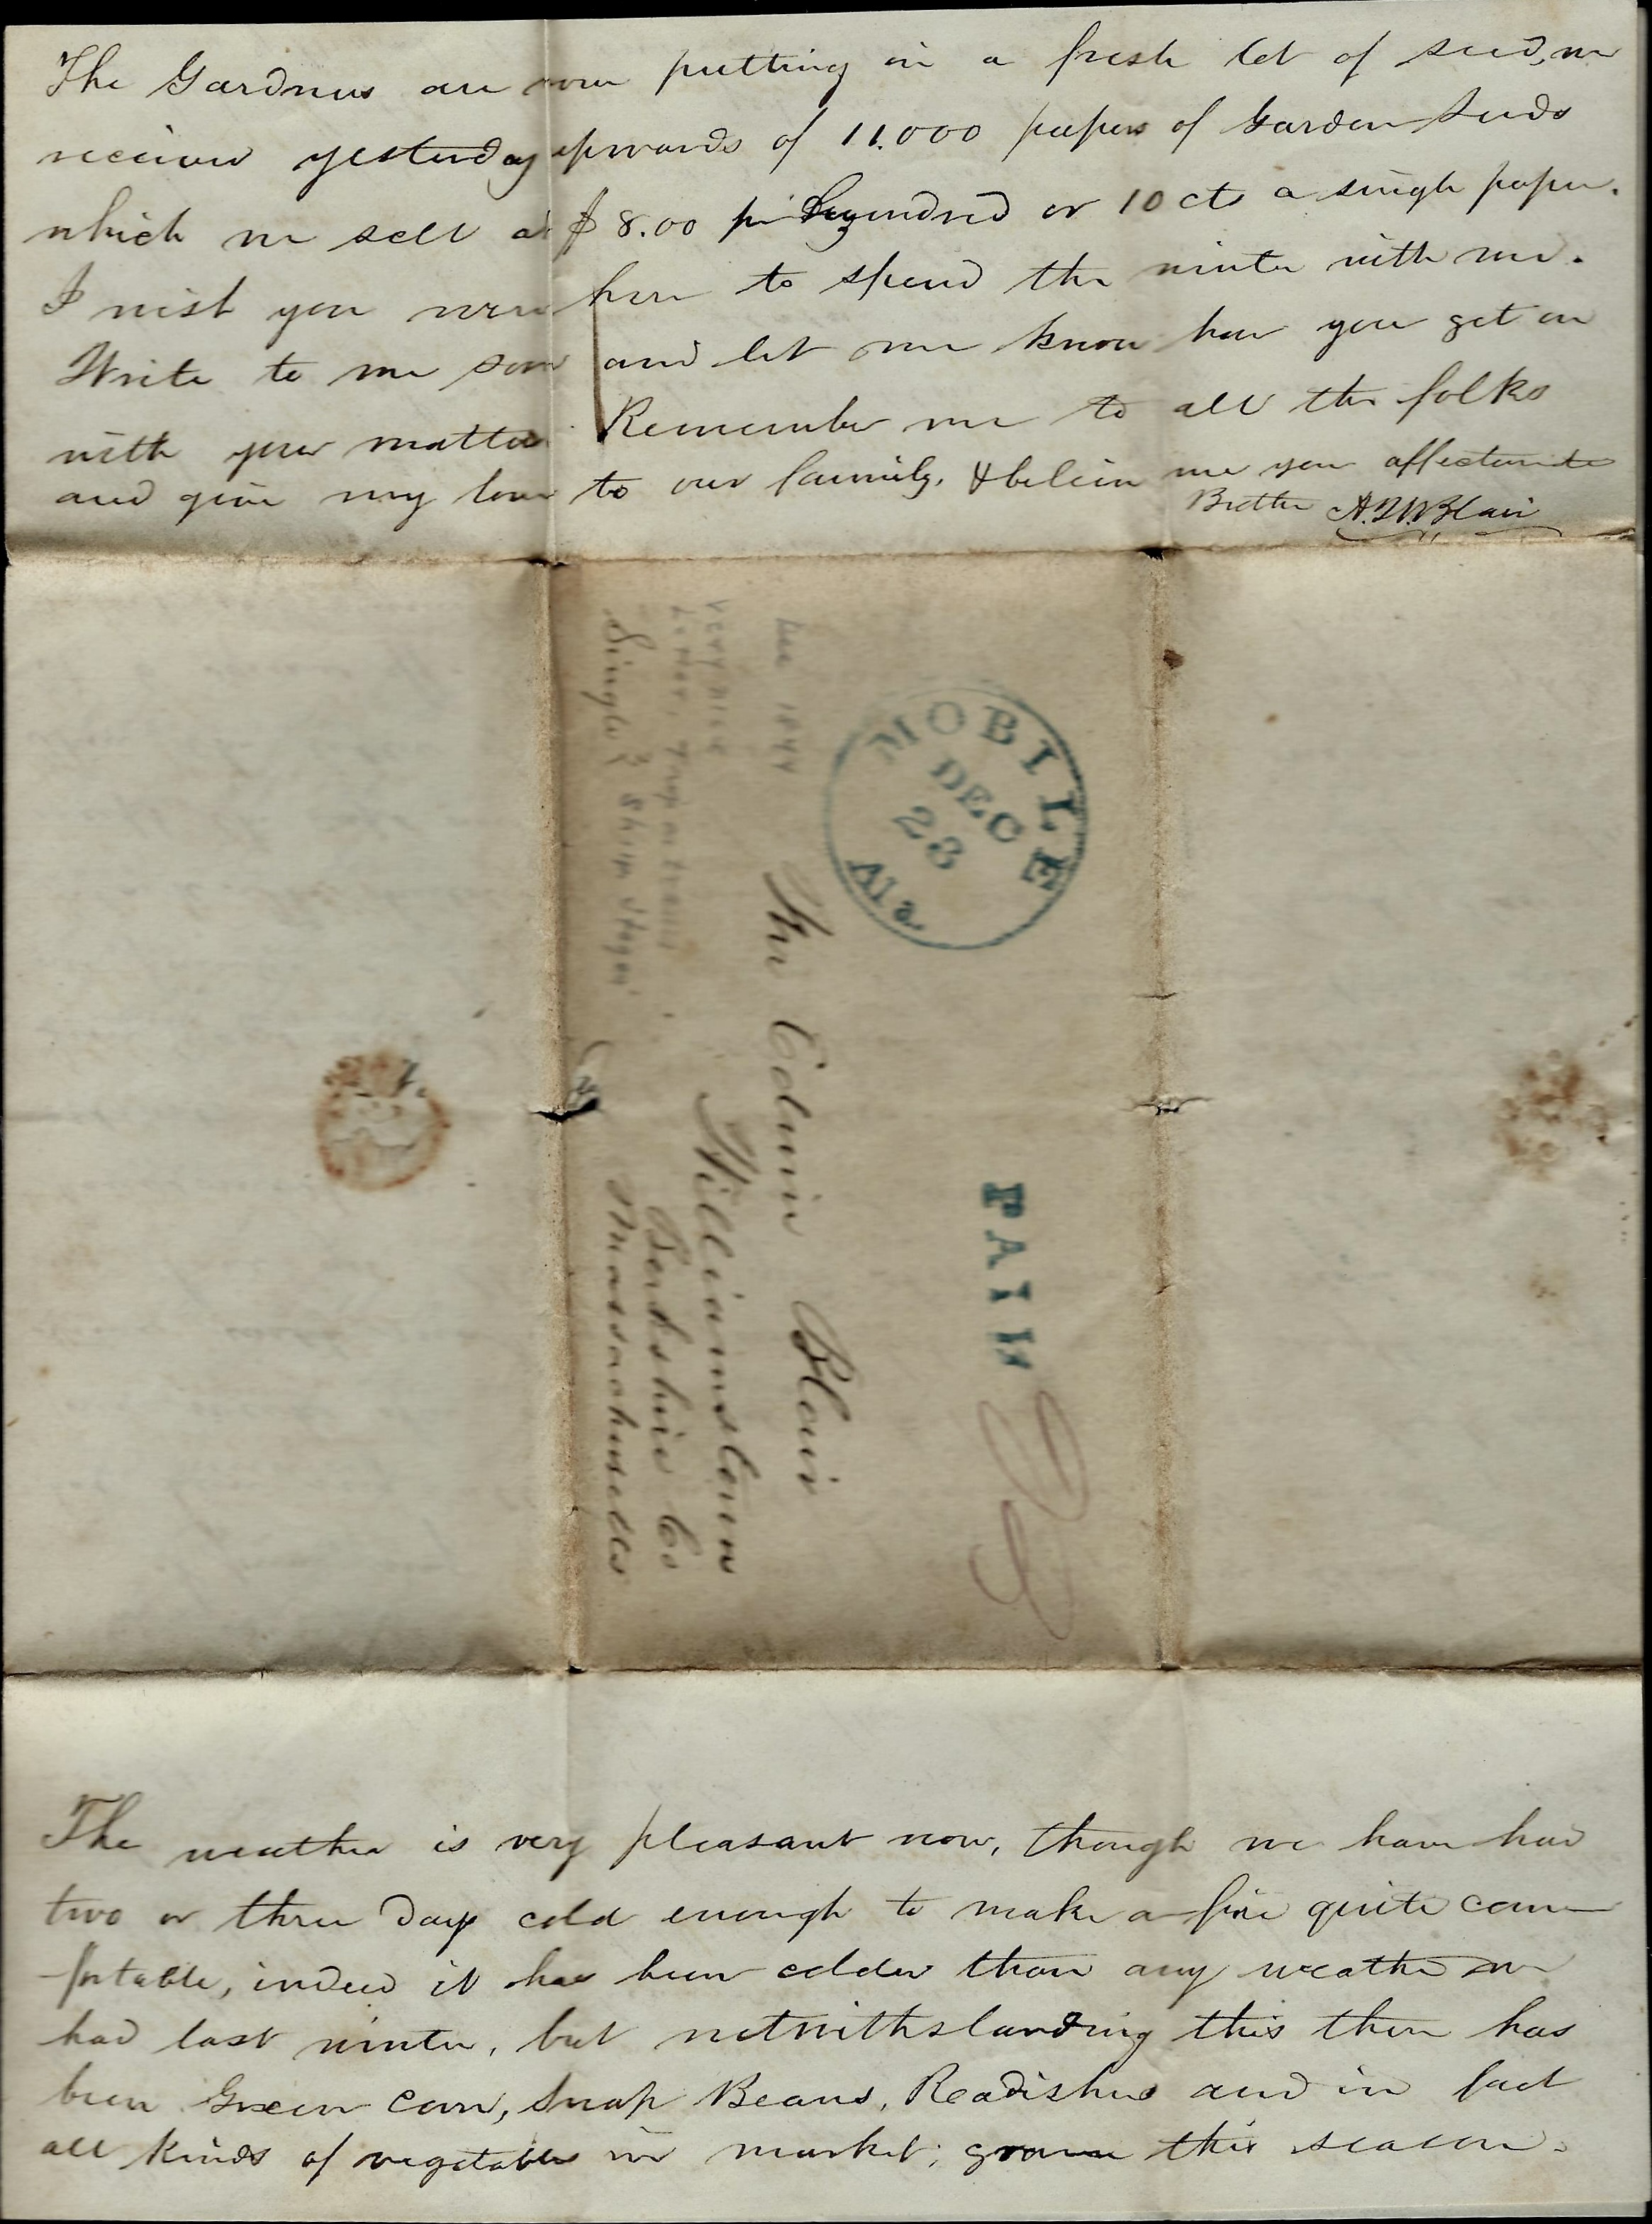 The Gardners are now putting in a fresh lot of seed, we
received yesterday upwards of 11.000 papers of Garden Seeds
which we sell at $8.00 pr Hundred or 10 cts a single paper.
I wish you were here to spend the winter with me.
Write to me soon and let me know how you get on
with your matters Remember me to all the folks
and give my love to our family. & believe me your affectionate
Brother A. P. W. Blair
MOBILE
DEC
23
Ala.
PAID
Mr Edwin Blair
Williamstown
Berkshire Co
Massachusetts
Dec 1844
very nice
Letter,
Single
The weather is very pleasant now, though we have had
two or three days cold enough to make a fire quite com-
-fortable, indeed it has been colder than any weather we
had last winter, but notwithstanding this there has
been Green Corn, Snap Beans, Readishes and in fact
all kinds of vegetables in market, grown this season.